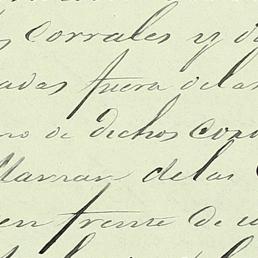 corrales y d
adas fuera de la
no de dichos co
llaman de las
en frente de u